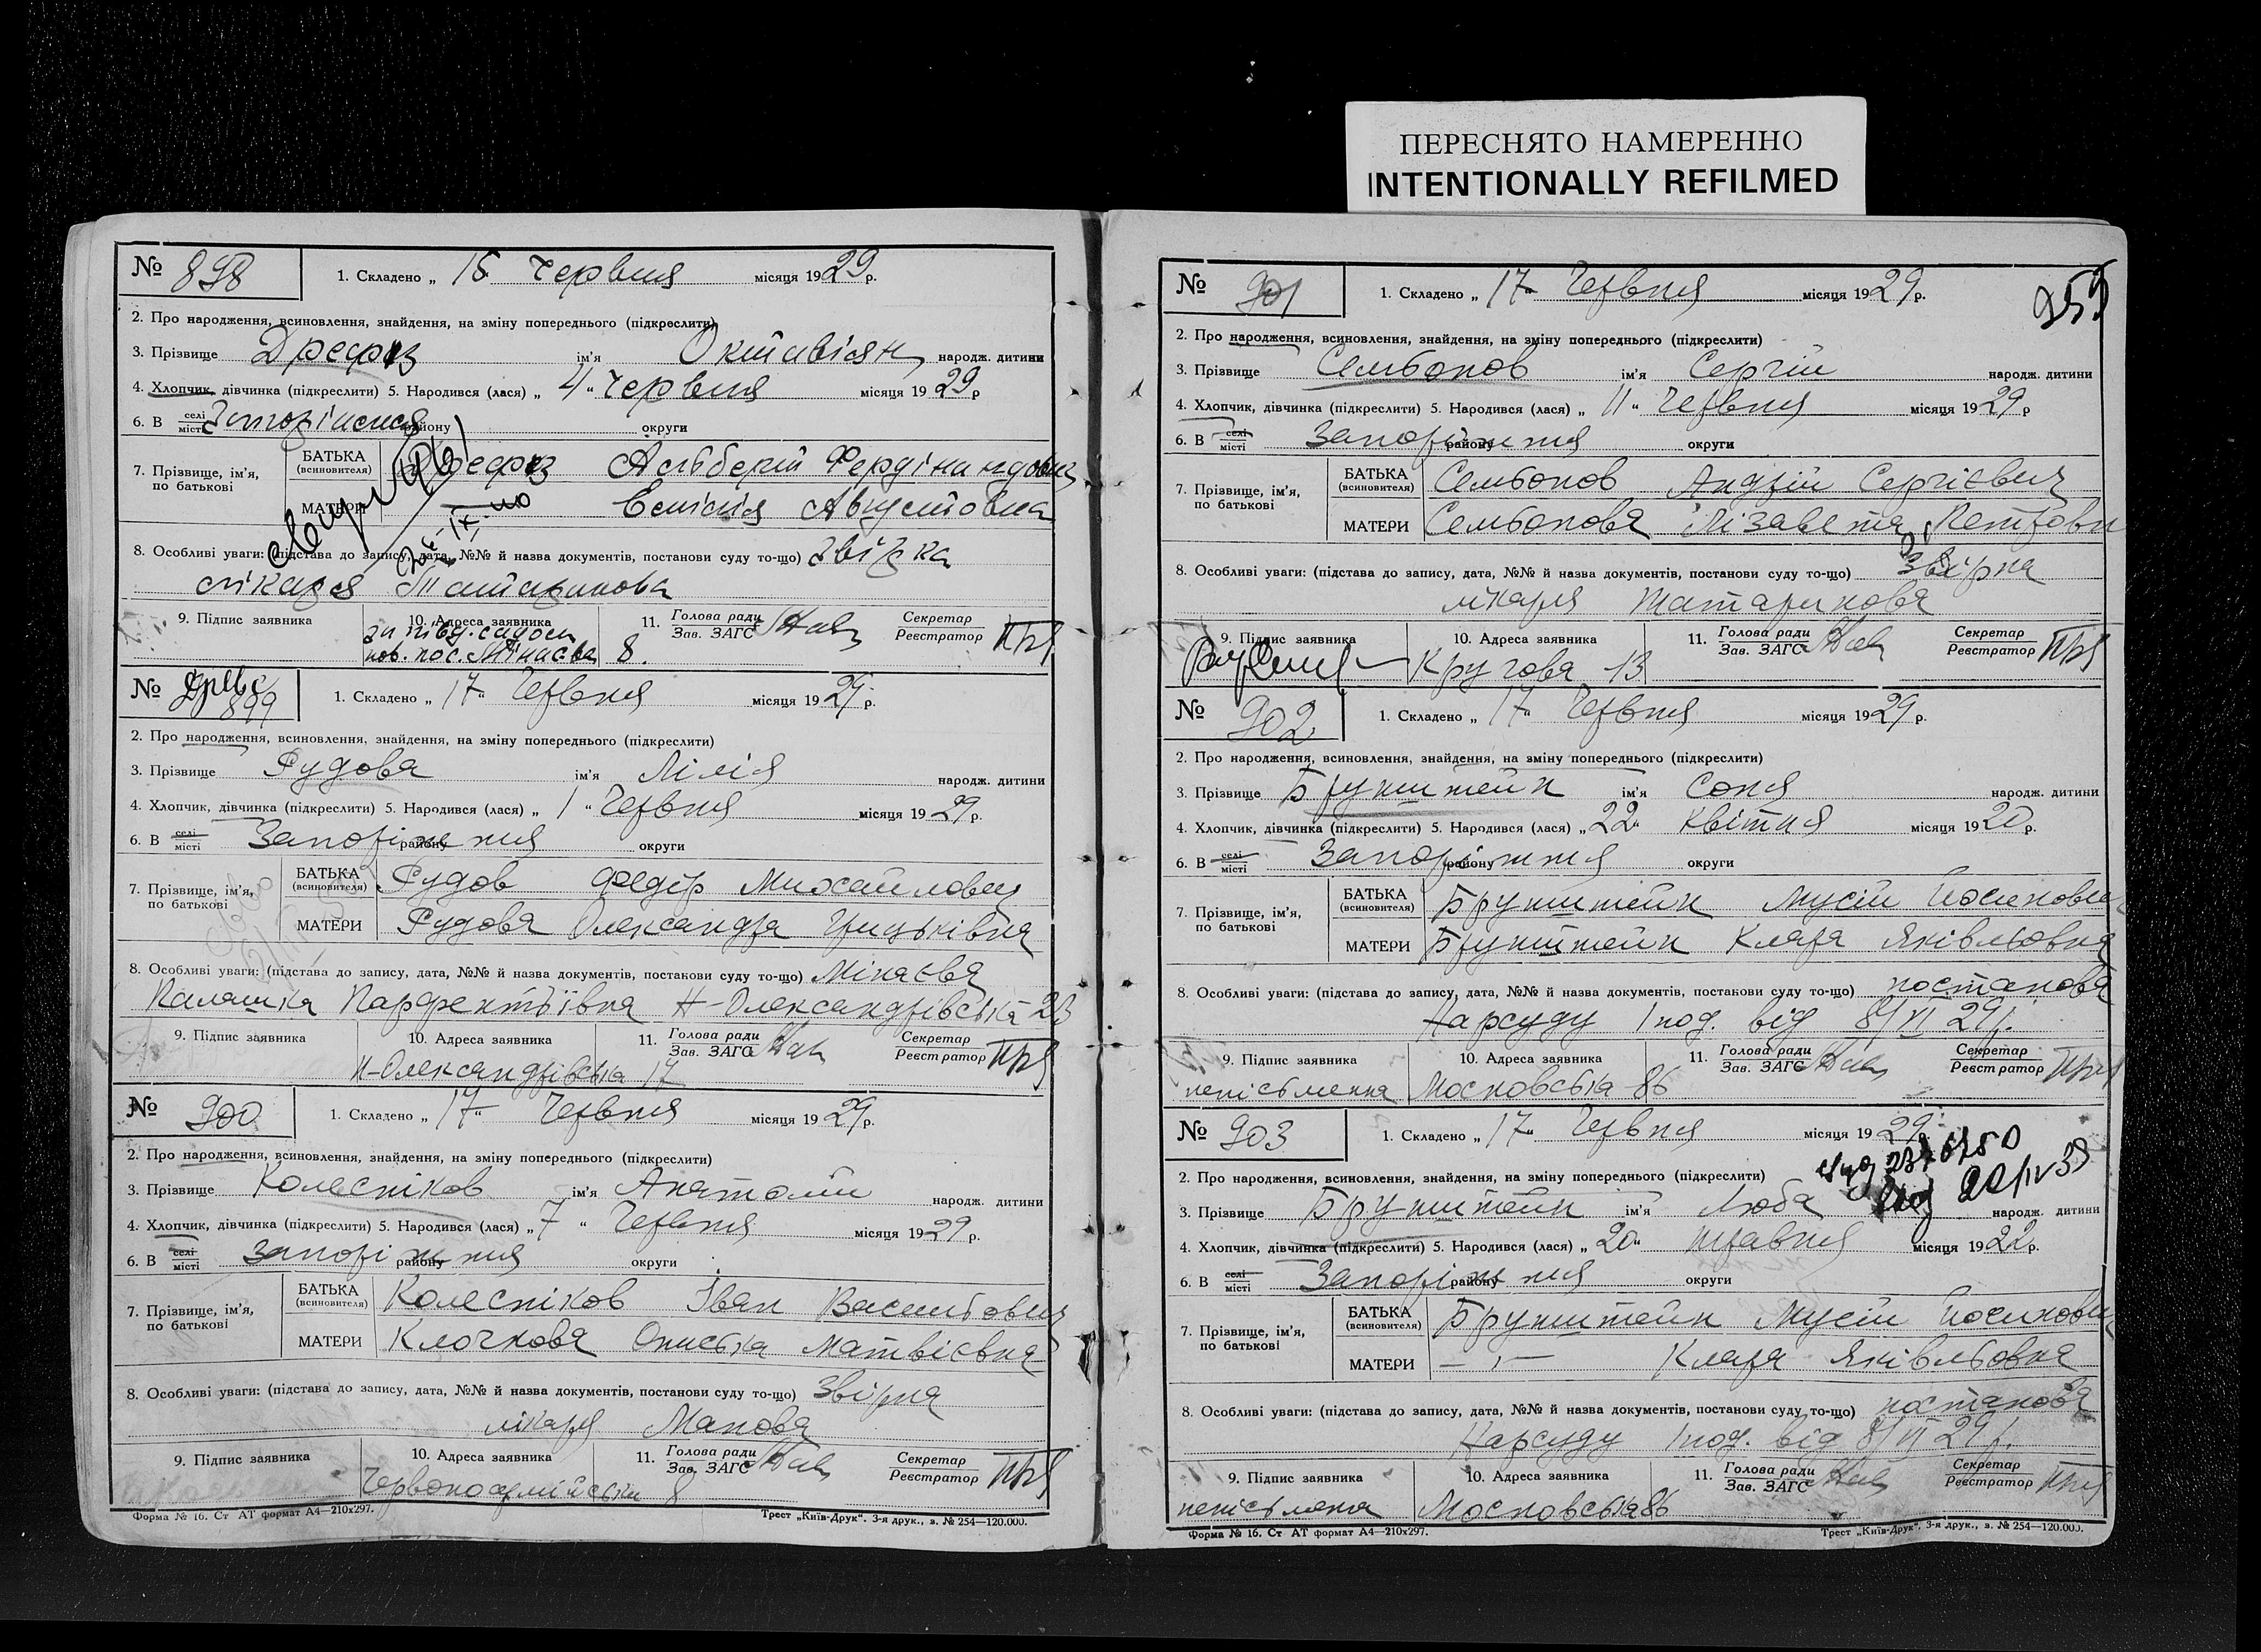 ПЕРЕСНЯТО НАМЕРЕННО
INTENTIONALLY REFILMED
№ 898 1. Складено „ 15 червня місяця 1929 р.
2. Про народження, всиновлення, знайдення, на зміну попереднього (підкреслити)
3. Прізвище ім'я Октавіян народж. дитини
4. Хлопчик, дівчинка (підкреслити) 5. Народився (лася) „ 4 “ червня місяця 1929 р
6. В селі місті району округи
7. Прізвище, ім'я, по батькові
БАТЬКА (всиновителя) Альберт Фердінандович
МАТЕРИ Емілія Августовна
8. Особливі уваги: (підстава до запису, дата, №№ й назва документів, постанови суду то-що) звістка
лікаря Татаринова
9. Підпис заявника 10. Адреса заявника 11. Голова ради Зав. ЗАГС Секретар Реєстратор
8.
№ 899 1. Складено „ 17 “ Червня місяця 1929 р.
2. Про народження, всиновлення, знайдення, на зміну попереднього (підкреслити)
3. Прізвище Рудова ім'я Лілія народж. дитини
4. Хлопчик, дівчинка (підкреслити) 5. Народився (лася) „ 1 “ Червня місяця 1929 р.
6. В селі місті Запоріжжя району округи
7. Прізвище, ім'я, по батькові
БАТЬКА (всиновителя) Рудов Федір Михайлович
МАТЕРИ Рудова Олександра Грицьківна
8. Особливі уваги: (підстава до запису, дата, №№ й назва документів, постанови суду то-що) Мінаєва
Палашка Парфентьївна Н-Олександрівська 23
9. Підпис заявника 10. Адреса заявника 11. Голова ради Зав. ЗАГС Секретар Реєстратор
Н-Олександрівська 17
№ 900 1. Складено „ 17 “ Червня місяця 1929 р.
2. Про народження, всиновлення, знайдення, на зміну попереднього (підкреслити)
3. Прізвище Колесніков ім'я Анатолій народж. дитини
4. Хлопчик, дівчинка (підкреслити) 5. Народився (лася) „ 7 “ Червня місяця 1929 р.
6. В селі місті Запоріжжя району округи
7. Прізвище, ім'я, по батькові
БАТЬКА (всиновителя) Колесніков Іван Васильович
МАТЕРИ Клочкова Матвієвна
8. Особливі уваги: (підстава до запису, дата, №№ й назва документів, постанови суду то-що) Звірка
лікаря Манова
9. Підпис заявника 10. Адреса заявника 11. Голова ради Зав. ЗАГС Секретар Реєстратор
Червоноармійська 8
Форма № 16. Ст АТ формат А4—210х297. Трест „Київ-Друк“. 3-я друк., з. № 254—120.000.
259
№ 901 1. Складено „ 17 “ Червня місяця 1929 р.
2. Про народження, всиновлення, знайдення, на зміну попереднього (підкреслити)
3. Прізвище Сельбонов ім'я Сергій народж. дитини
4. Хлопчик, дівчинка (підкреслити) 5. Народився (лася) „ 11 “ Червня місяця 1929 р
6. В селі місті Запоріжжя району округи
7. Прізвище, ім'я, по батькові
БАТЬКА (всиновителя) Сельбонов Андрій Сергієвич
МАТЕРИ Сельбонова Лізавета Петровн
8. Особливі уваги: (підстава до запису, дата, №№ й назва документів, постанови суду то-що) Звірка
лікаря Татаринова
9. Підпис заявника 10. Адреса заявника 11. Голова ради Зав. ЗАГС Секретар Реєстратор
Кругова 13
№ 902 1. Складено „ 17 “ Червня місяця 1929 р.
2. Про народження, всиновлення, знайдення, на зміну попереднього (підкреслити)
3. Прізвище Брунштейн ім'я Соня народж. дитини
4. Хлопчик, дівчинка (підкреслити) 5. Народився (лася) „ 22 “ квітня місяця 1920 р.
6. В селі місті Запоріжжя району округи
7. Прізвище, ім'я, по батькові
БАТЬКА (всиновителя) Брунштейн Мусій Йосипович
МАТЕРИ Брунштейн Клара Яківльовна
8. Особливі уваги: (підстава до запису, дата, №№ й назва документів, постанови суду то-що) постанова
Нарсуду 1 под. від 8/VI 29 р.
9. Підпис заявника 10. Адреса заявника 11. Голова ради Зав. ЗАГС Секретар Реєстратор
непісьменна Московська 86
№ 903 1. Складено „ 17 “ Червня місяця 1929 р.
2. Про народження, всиновлення, знайдення, на зміну попереднього (підкреслити)
3. Прізвище Брунштейн ім'я Люба народж. дитини
4. Хлопчик, дівчинка (підкреслити) 5. Народився (лася) „ 20 “ травня місяця 1922 р.
6. В селі місті Запоріжжя району округи
7. Прізвище, ім'я, по батькові
БАТЬКА (всиновителя) Брунштейн Мусій Йосипович
МАТЕРИ — „ — Клара Яківльовна
8. Особливі уваги: (підстава до запису, дата, №№ й назва документів, постанови суду то-що) постанова
Нарсуду 1 под. від 8/VI 29 р.
9. Підпис заявника 10. Адреса заявника 11. Голова ради Зав. ЗАГС Секретар Реєстратор
непісьменна Московська 86
Форма № 16. Ст АТ формат А4—210х297. Трест „Київ-Друк“. 3-я друк., з. № 254—120.000.